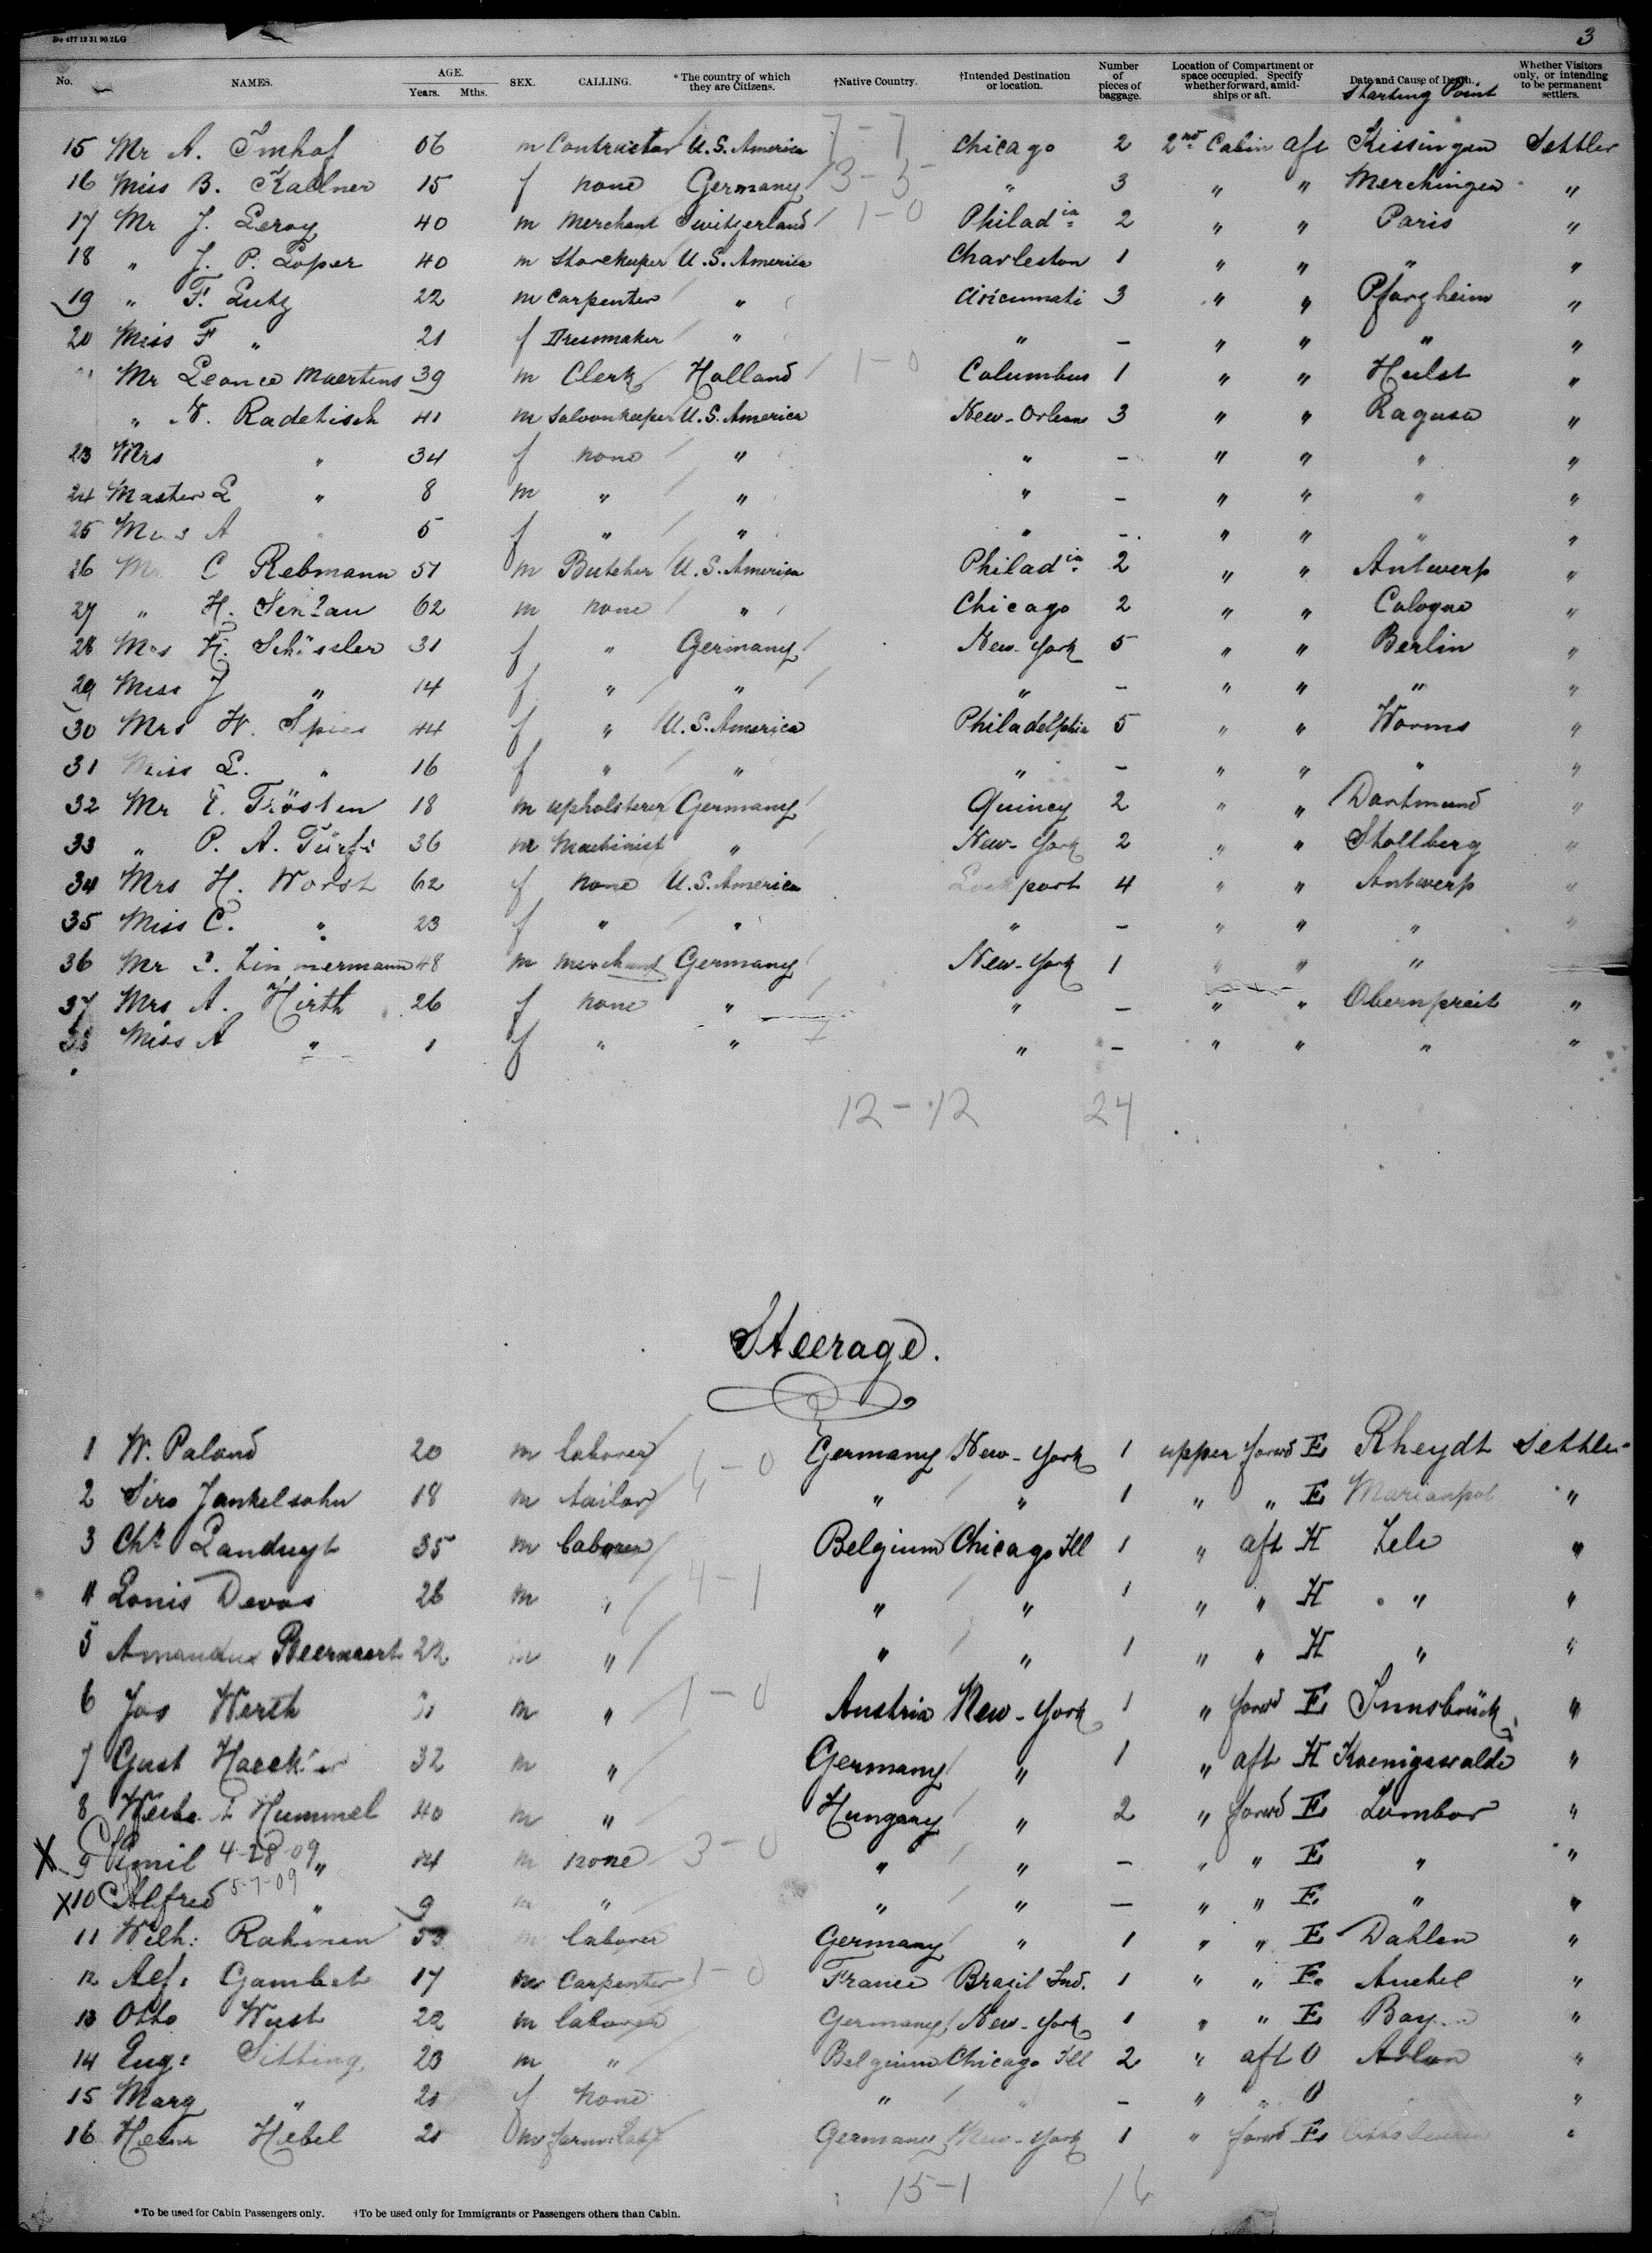 Do 477 12 31 90 2LG
3
No. NAMES. AGE. Years. Mths. SEX. CALLING. *The country of which they are Citizens. †Native Country. †Intended Destination or location. Number of pieces of baggage. Location of Compartment or space occupied. Specify whether forward, amidships or aft. Date and Cause of Death. Starting Point Whether Visitors only, or intending to be permanent settlers.
7-7
15 Mr A. Imhof 56 m Contractor U.S. America Chicago 2 2nd Cabin aft Kissingen Settler
16 Miss B. Kallner 15 f none Germany 3-3 " 3 " " Merchingen "
17 Mr J. Leroy 40 m Merchant Switzerland 1-0 Philadia 2 " " Paris "
18 " J. P. Loper 40 m Storekeeper U.S. America Charleston 1 " " " "
19 " F. Lutz 22 m Carpenter " Cincinnati 3 " " Pforzheim "
20 Miss F " 21 f Dressmaker " " - " " " "
Mr Leonce Maertens 39 m Clerk Holland 1-0 Columbus 1 " " Hulst "
" N. Radetisch 41 m Saloonkeeper U.S. America New-Orleans 3 " " Ragusa "
23 Mrs " 34 f none " " - " " " "
24 Master L " 8 m " " " - " " " "
25 Miss A " 5 f " " " - " " " "
26 Mr C Rebmann 51 m Butcher U.S. America Philadia 2 " " Antwerp "
27 " H. 62 m none " Chicago 2 " " Cologne "
28 Mrs H. Schissler 31 f " Germany New-York 5 " " Berlin "
29 Miss J " 14 f " " " - " " " "
30 Mrs W. Spies 44 f " U.S. America Philadelphia 5 " " Worms "
31 Miss L. " 16 f " " " - " " " "
32 Mr E. Trösten 18 m upholsterer Germany Quincy 2 " " Dortmund "
33 " P. A. Türfs 36 m Machinist " New-York 2 " " Stollberg "
34 Mrs H. Worst 62 f none U.S. America Lockport 4 " " Antwerp "
35 Miss C. " 23 f " " " - " " " "
36 Mr Zimmermann 48 m merchant Germany New-York 1 " " " "
37 Mrs A. Hirth 26 f none " " - " " Obernpreit "
38 Miss A " 1 f " " " - " " " "
12-12 24
Steerage.
1 W. Paland 20 m laborer Germany New-York 1 upper forwd E Rheydt Settler
2 Siro Jankelsohn 18 m tailor " " 1 " " E Marianpol "
3 Chs Landuyt 35 m laborer Belgium Chicago Ill 1 " aft H Zele "
4 Louis Devos 26 m " 4-1 " " 1 " " H " "
5 Amandus Beernaert 22 m " " " 1 " " H " "
6 Jos Werth m " 1-0 Austria New-York 1 " forwd E Innsbrück "
7 Gust Haeckler 32 m " Germany " 1 " aft H Koenigswalde "
8 Hummel 40 m " Hungary " 2 " forwd E Zombor "
X 9 Emil 4-28-09 " 14 m none 3-0 " " - " " E " "
X 10 Alfred 5-7-09 " 9 m " " " - " " E " "
11 Wilh: Rahmen 53 m laborer Germany " 1 " " E Dahlen "
12 Alf: Gambet 17 m Carpenter 1-0 France Brazil Ind. 1 " " E Auchel "
13 Otto Wust 22 m laborer Germany New-York 1 " " E "
14 Eug: Sitting 23 m " Belgium Chicago Ill 2 " aft O Arlon "
15 Marg " 21 f none " " - " " O "
16 Herm Hebel 21 m farm Lab Germany New-York 1 " forwd E "
15-1 16
*To be used for Cabin Passengers only. †To be used only for Immigrants or Passengers others than Cabin.